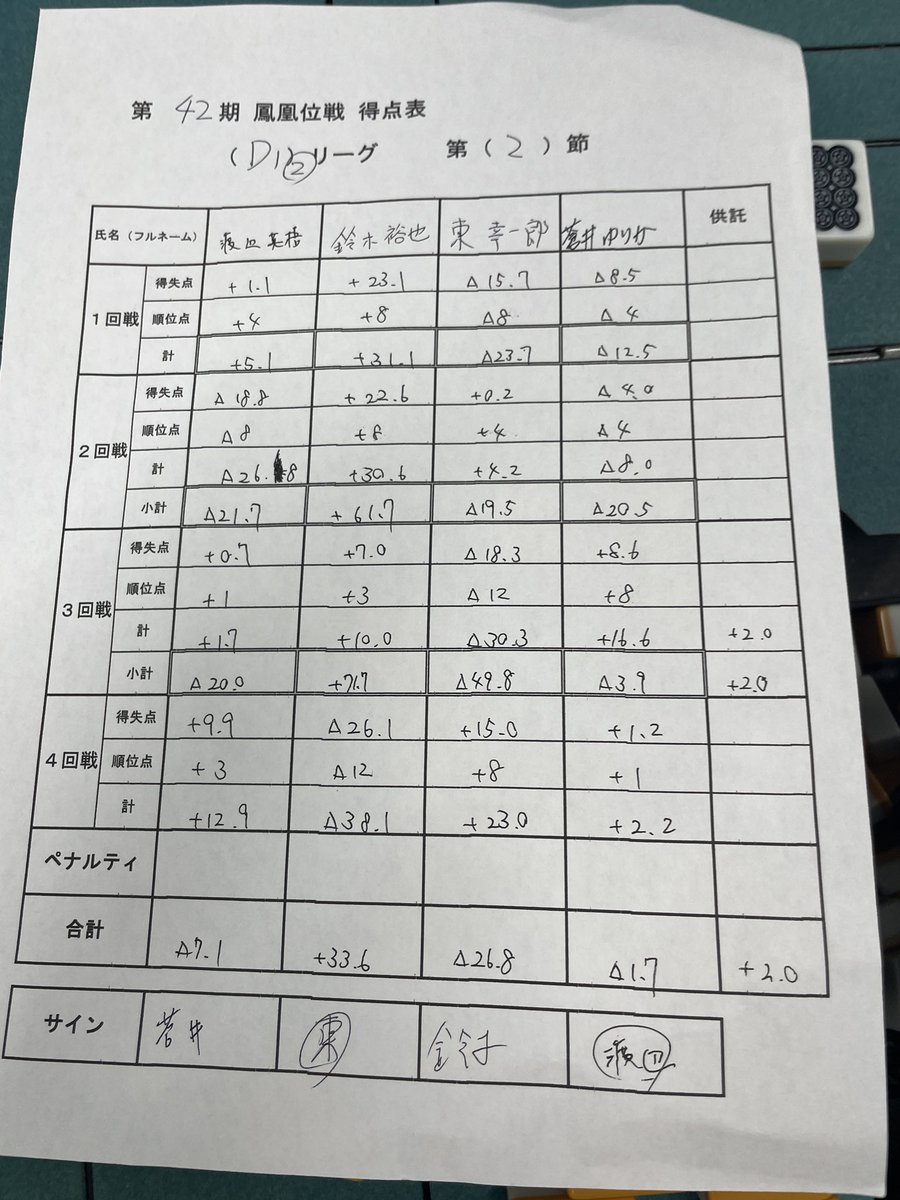 第 42 期 鳳凰位戦 得点表
( D1② リーグ 第 ( 2 ) 節
氏名（フルネーム） 渡辺英悟 鈴木裕也 東幸一郎 蒼井ゆりか 供託
1回戦
得失点 +1.1 +23.1 △15.7 △8.5
順位点 +4 +8 △8 △4
計 +5.1 +31.1 △23.7 △12.5
2回戦
得失点 △18.8 +22.6 +0.2 △4.0
順位点 △8 +8 +4 △4
計 △26.8 +30.6 +4.2 △8.0
小計 △21.7 +61.7 △19.5 △20.5
3回戦
得失点 +0.7 +7.0 △18.3 +8.6
順位点 +1 +3 △12 +8
計 +1.7 +10.0 △30.3 +16.6 +2.0
小計 △20.0 +71.7 △49.8 △3.9 +2.0
4回戦
得失点 +9.9 △26.1 +15.0 +1.2
順位点 +3 △12 +8 +1
計 +12.9 △38.1 +23.0 +2.2
ペナルティ
合計 △7.1 +33.6 △26.8 △1.7 +2.0
サイン 蒼井 東 鈴木 渡辺